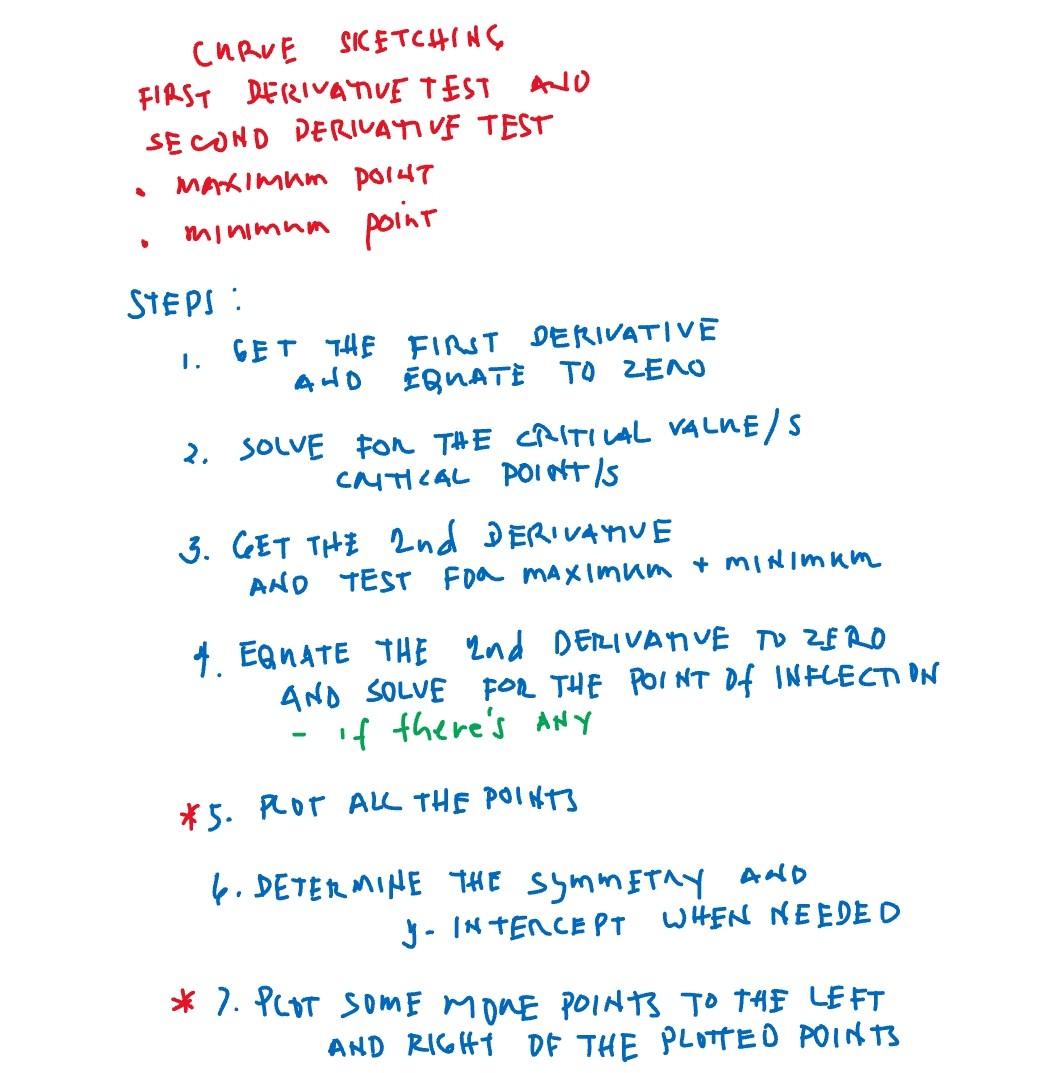 CURVE SKETCHING
FIRST DERIVATIVE TEST AND
SECOND DERIVATIVE TEST
• MAXIMUM POINT
• MINIMUM POINT
STEPS :
1. GET THE FIRST DERIVATIVE
AND EQUATE TO ZERO
2. SOLVE FOR THE CRITICAL VALUE/S
CRITICAL POINT/S
3. GET THE 2nd DERIVATIVE
AND TEST FOR MAXIMUM + MINIMUM
4. EQUATE THE 2nd DERIVATIVE TO ZERO
AND SOLVE FOR THE POINT Of INFLECTION
- if there's ANY
* 5. PLOT ALL THE POINTS
6. DETERMINE THE SYMMETRY AND
y - INTERCEPT WHEN NEEDED
* 7. PLOT SOME MORE POINTS TO THE LEFT
AND RIGHT OF THE PLOTTED POINTS